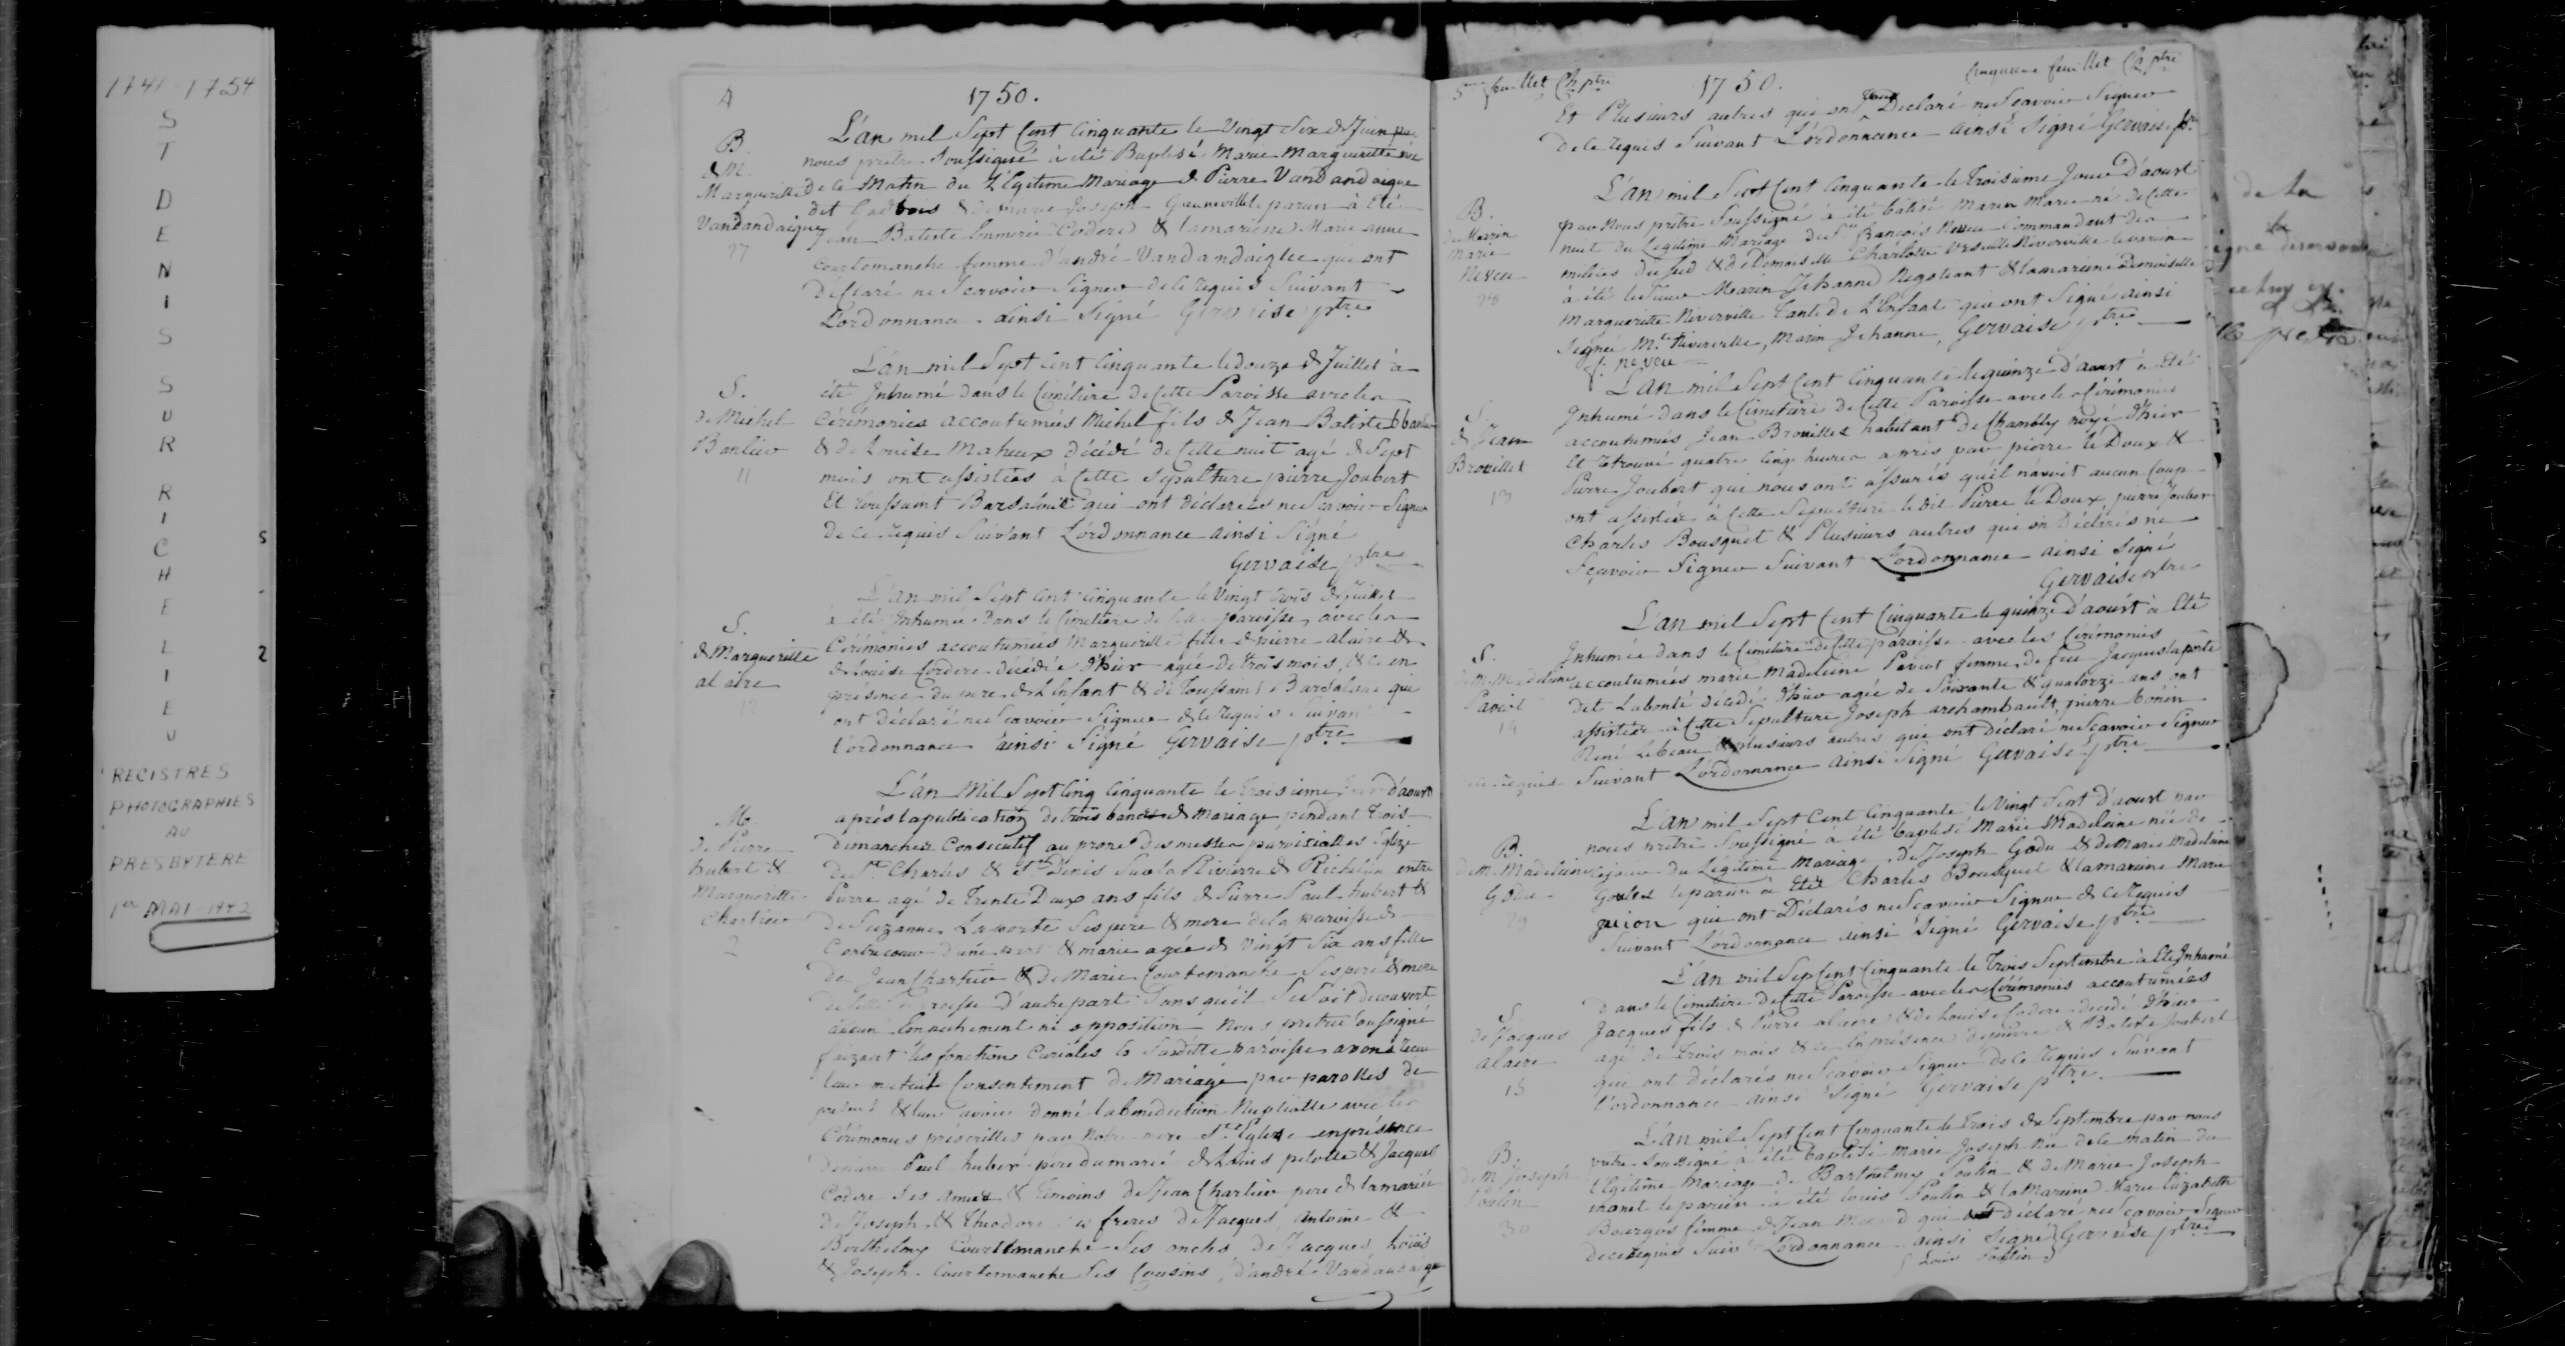 1741-1754
ST DENIS SUR RICHELIEU
REGISTRES
PHOTOGRAPHIES
AU
PRESBYTERE
1er MAI 1942
5
2
4
1750.
B
de M.
Marguerite
Vandandaigue
27
L'an mil Sept Cent Cinquante le vingt Six de Juin par
nous prêtre Soussigné à eté Baptisé Marie Marguerite née
de ce Matin du Légitime Mariage de Pierre Vandandaigue
dit Gadbois & de marie Joseph le parain à Eté
Jean Batiste Codere & la maraine Marie anne
courtemanche femme d'andré Vandandaigue qui ont
Déclaré ne Scavoir Signer de Ce requis Suivant
L'ordonnance ainsi Signé Gervaise ptre
S.
de Michel
Banlier
11
L'an mil Sept Cent Cinquante le douze de Juillet à
été Inhumé dans le Cimetière de Cette Paroisse avec les
Cérémonies accoutumées Michel fils de Jean Batiste banlier
& de Louise Maheux décédé de Cette nuit agé de Sept
mois ont assistées à Cette Sepulture pierre Joubert
Et toussaint Barsalout qui ont déclarées ne Scavoir Signer
de Ce requis Suivant L'ordonnance ainsi Signé
Gervaise ptre
S.
de Marguerite
alaire
12
L'an mil Sept Cent Cinquante le vingt trois de Juillet
à été Inhumée Dans le Cimetiere de paroisse avec les
Cérémonies accoutumées Marguerite fille de pierre alaire &
de Louise Codere decédée d'hier agée de trois mois, & Ce en
presence du pere de L'Enfant & de Toussaint Barsalout qui
ont déclaré ne Scavoir Signer de Ce requis Suivant
l'ordonnance ainsi Signé Gervaise ptre
M.
de Pierre
hubert &
Marguerite
Chartier
2
L'an Mil Sept Cinq Cinquante le troisieme Jour d'aoust
après la publication de trois bancs de Mariage pendant trois
dimanches Consecutif au prone des messes paroisialles Eglize
de St Charles & St Denis Sur la Rivierre de Richelieu entre
Pierre agé de Trente Deux ans fils de Pierre Paul hubert &
de Suzanne Laporte Ses pere & mere de la paroisse de
Contrecoeur d'une part & marie agée de Vingt Six ans fille
de Jean Chartier & de Marie Courtemanche Ses pere & mere
de cette Paroisse d'autre part Sans qu'il Se Soit decouvert
aucun Empechement ni opposition Nous pretre Soussigné
faizant les fonction Curiales la Sarditte paroisse avons recu
leur mutuel Consentement de Mariage par parolles de
present & leur avons donné la benediction Nuptialle avec les
Cérémonies préscrittes par Notre mere Ste Eglise en présence
de pierre Paul huber pere du marié de Louis pelotte & Jacques
Codere Ses Amies & temoins de Jean Chartier pere de la mariée
de Joseph & Theodore Ses freres de Jacques Antoine &
Berthelemy Courtemanche Ses oncles de Jacques Louis
& Joseph Courtemanche Ses Cousins, d'andré Vandandaigue
5me feuillet Ch. ptre
1750.
Cinquieme feuillet Ch. ptre
Et Plusieurs autres qui ont tous Declaré ne Scavoir Signer
de Ce requis Suivant L'ordonnance ainsi Signé Gervaise ptre
B.
de Marin
Marie
Neveu
28
L'an mil Sept Cent Cinquante le troisieme Jour D'aoust
par Nous prêtre Soussigné à été bâtisé Marin Marie né de Cette
nuit du Legitime Mariage du Sr François Neveu Commandant des
milices du Sud & de Demoiselle Charlotte Niverville le parain
à été le Sieur Marin Jehanne Negotiant & la maraine Demoiselle
Marguerite Niverville Tante de L'Enfant qui ont Signé ainsi
Signée M. Niverville, Marin Jehanne, Gervaise ptre
f. neveu
S.
de Jean
Brouillet
13
L'an mil Sept Cent Cinquante le quinze d'aoust à Eté
Inhumé dans le Cimetiere de Cette Paroisse avec les Cérémonies
accoutumées Jean Brouillet habitant de Chambly noyé d'hier
Et retrouvé quatre Cinq heures apres par pierre le Doux &
Pierre Joubert qui nous ont assurés qu'il n'avoit aucun Coup
ont assistées à Cette Sepulture le dit Pierre le Doux, pierre Joubert
Charles Bousquet & Plusieurs autres qui on Déclarés ne
Sçavoir Signer Suivant L'ordonnance ainsi Signé
Gervaise ptre
S.
de M. Madeleine
Paviot
14
L'an mil Sept Cent Cinquante le quinze d'aoust à Eté
Inhumée dans le Cimetière de Cette paroisse avec les Cérémonies
accoutumées marie Madeleine Paviot femme de feu Jacques laporte
dit Labonté décédé d'hier agée de Soixante & quatorze ans ont
assistées à Cette Sepulture Joseph archambault, pierre bonin
René Lebeau & Plusieurs autres qui ont déclaré ne Scavoir Signer
de ce requis Suivant L'ordonnance ainsi Signé Gervaise ptre
B.
de M. Madeleine
Godu
29
L'an mil Sept Cent Cinquante le Vingt Sept d'aoust par
nous prêtre Soussigné à été baptisé Marie Madeleine née de
Ce jour du Légitime Mariage de Joseph Godu & de Marie Madeleine
le parain à Eté Charles Bousquet & la maraine Marie
guion qui ont Déclarés ne Scavoir Signer de Ce requis
Suivant L'ordonnance ainsi Signé Gervaise ptre
S.
de Jacques
alaire
15
L'an mil Sep Cent Cinquante le Trois Septembre à Eté Inhumé
dans le Cimetière de Cette Paroisse avec les Cérémonies accoutumées
Jacques fils de Pierre alaire & de Louise Codere decédé d'hier
agé de Trois mois & Ce en présence de pierre & Batiste Joubert
qui ont déclarés ne Scavoir Signer de Ce requis Suivant
l'ordonnance ainsi Signé Gervaise ptre
B.
de M. Joseph
Poulin
30
L'an mil Sept Cent Cinquante le Trois de Septembre par nous
pretre Soussigné à été baptisé marie Joseph née de Ce matin du
Légitime Mariage de Barthelmy Poulin & de Marie Joseph
le parain à été Louis Poulin & la Maraine Marie Elizabeth
Bourgois femme de Jean qui ont déclaré ne Scavoir Signer
de ce requis Suiv. L'ordonnance ainsi Signé Gervaise ptre
Louis Poulin
de la